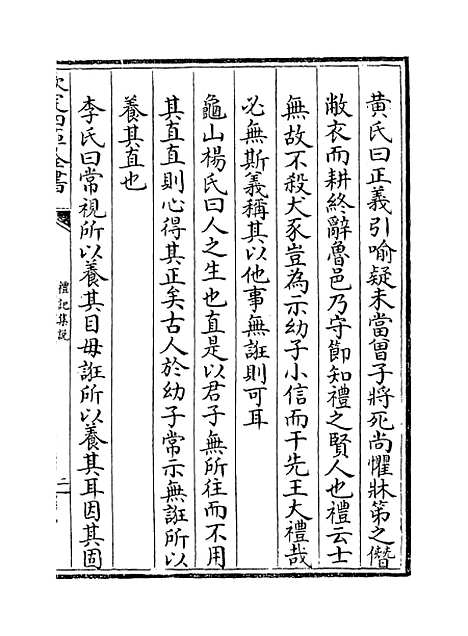 黄氏曰正義引喻疑未當曾子將死尚懼牀第之僭
敝衣而耕終辭魯邑乃守節知禮之賢人也禮云士
無故不殺犬豕豈為示幼子小信而干先王大禮哉
必無斯義稱其以他事無誑則可耳
龜山楊氏曰人之生也直是以君子無所往而不用
其直直則心得其正矣古人於幼子常示無誑所以
養其直也
李氏曰常視所以養其目毋誑所以養其耳因其固
欽定四庫全書
禮記集說